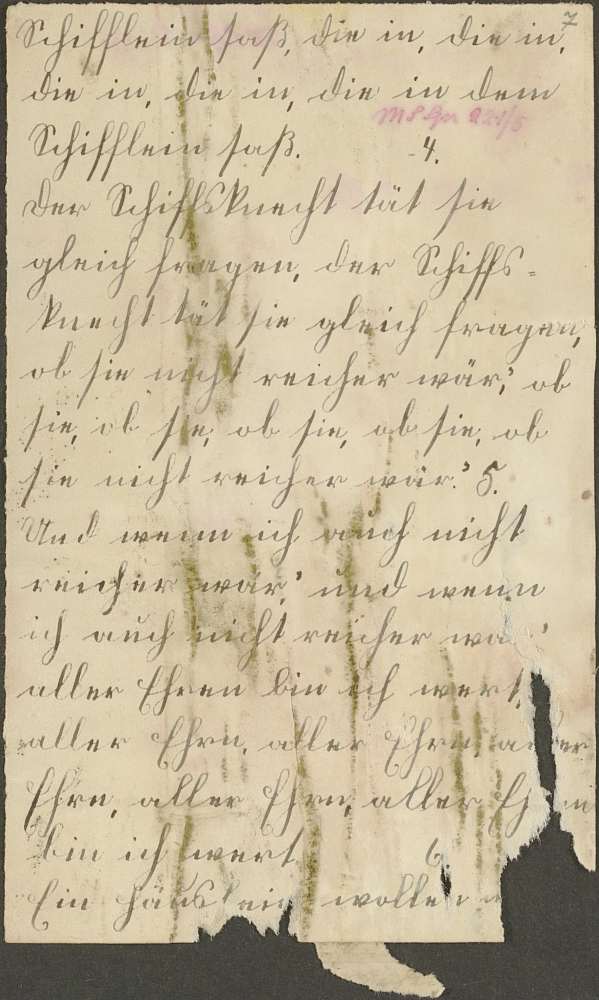 7
Schifflein saß, die in, die in,
die in, die in, die in dem
Schifflein saß. 4.
Der Schiffsknecht tät sie
gleich fragen, der Schiffs-
knecht tät sie gleich fragen,
ob sie nicht reicher wär', ob
sie, ob sie, ob sie, ob sie, ob
sie nicht reicher wär.' 5.
Und wenn ich auch nicht
reicher wär,' und wenn
ich auch nicht reicher wä
aller Ehren bin ich wert,
aller Ehrn, aller Ehrn, aller
Ehrn, aller Ehrn, aller
bin ich wert 6.
Ein Häuslein wollen